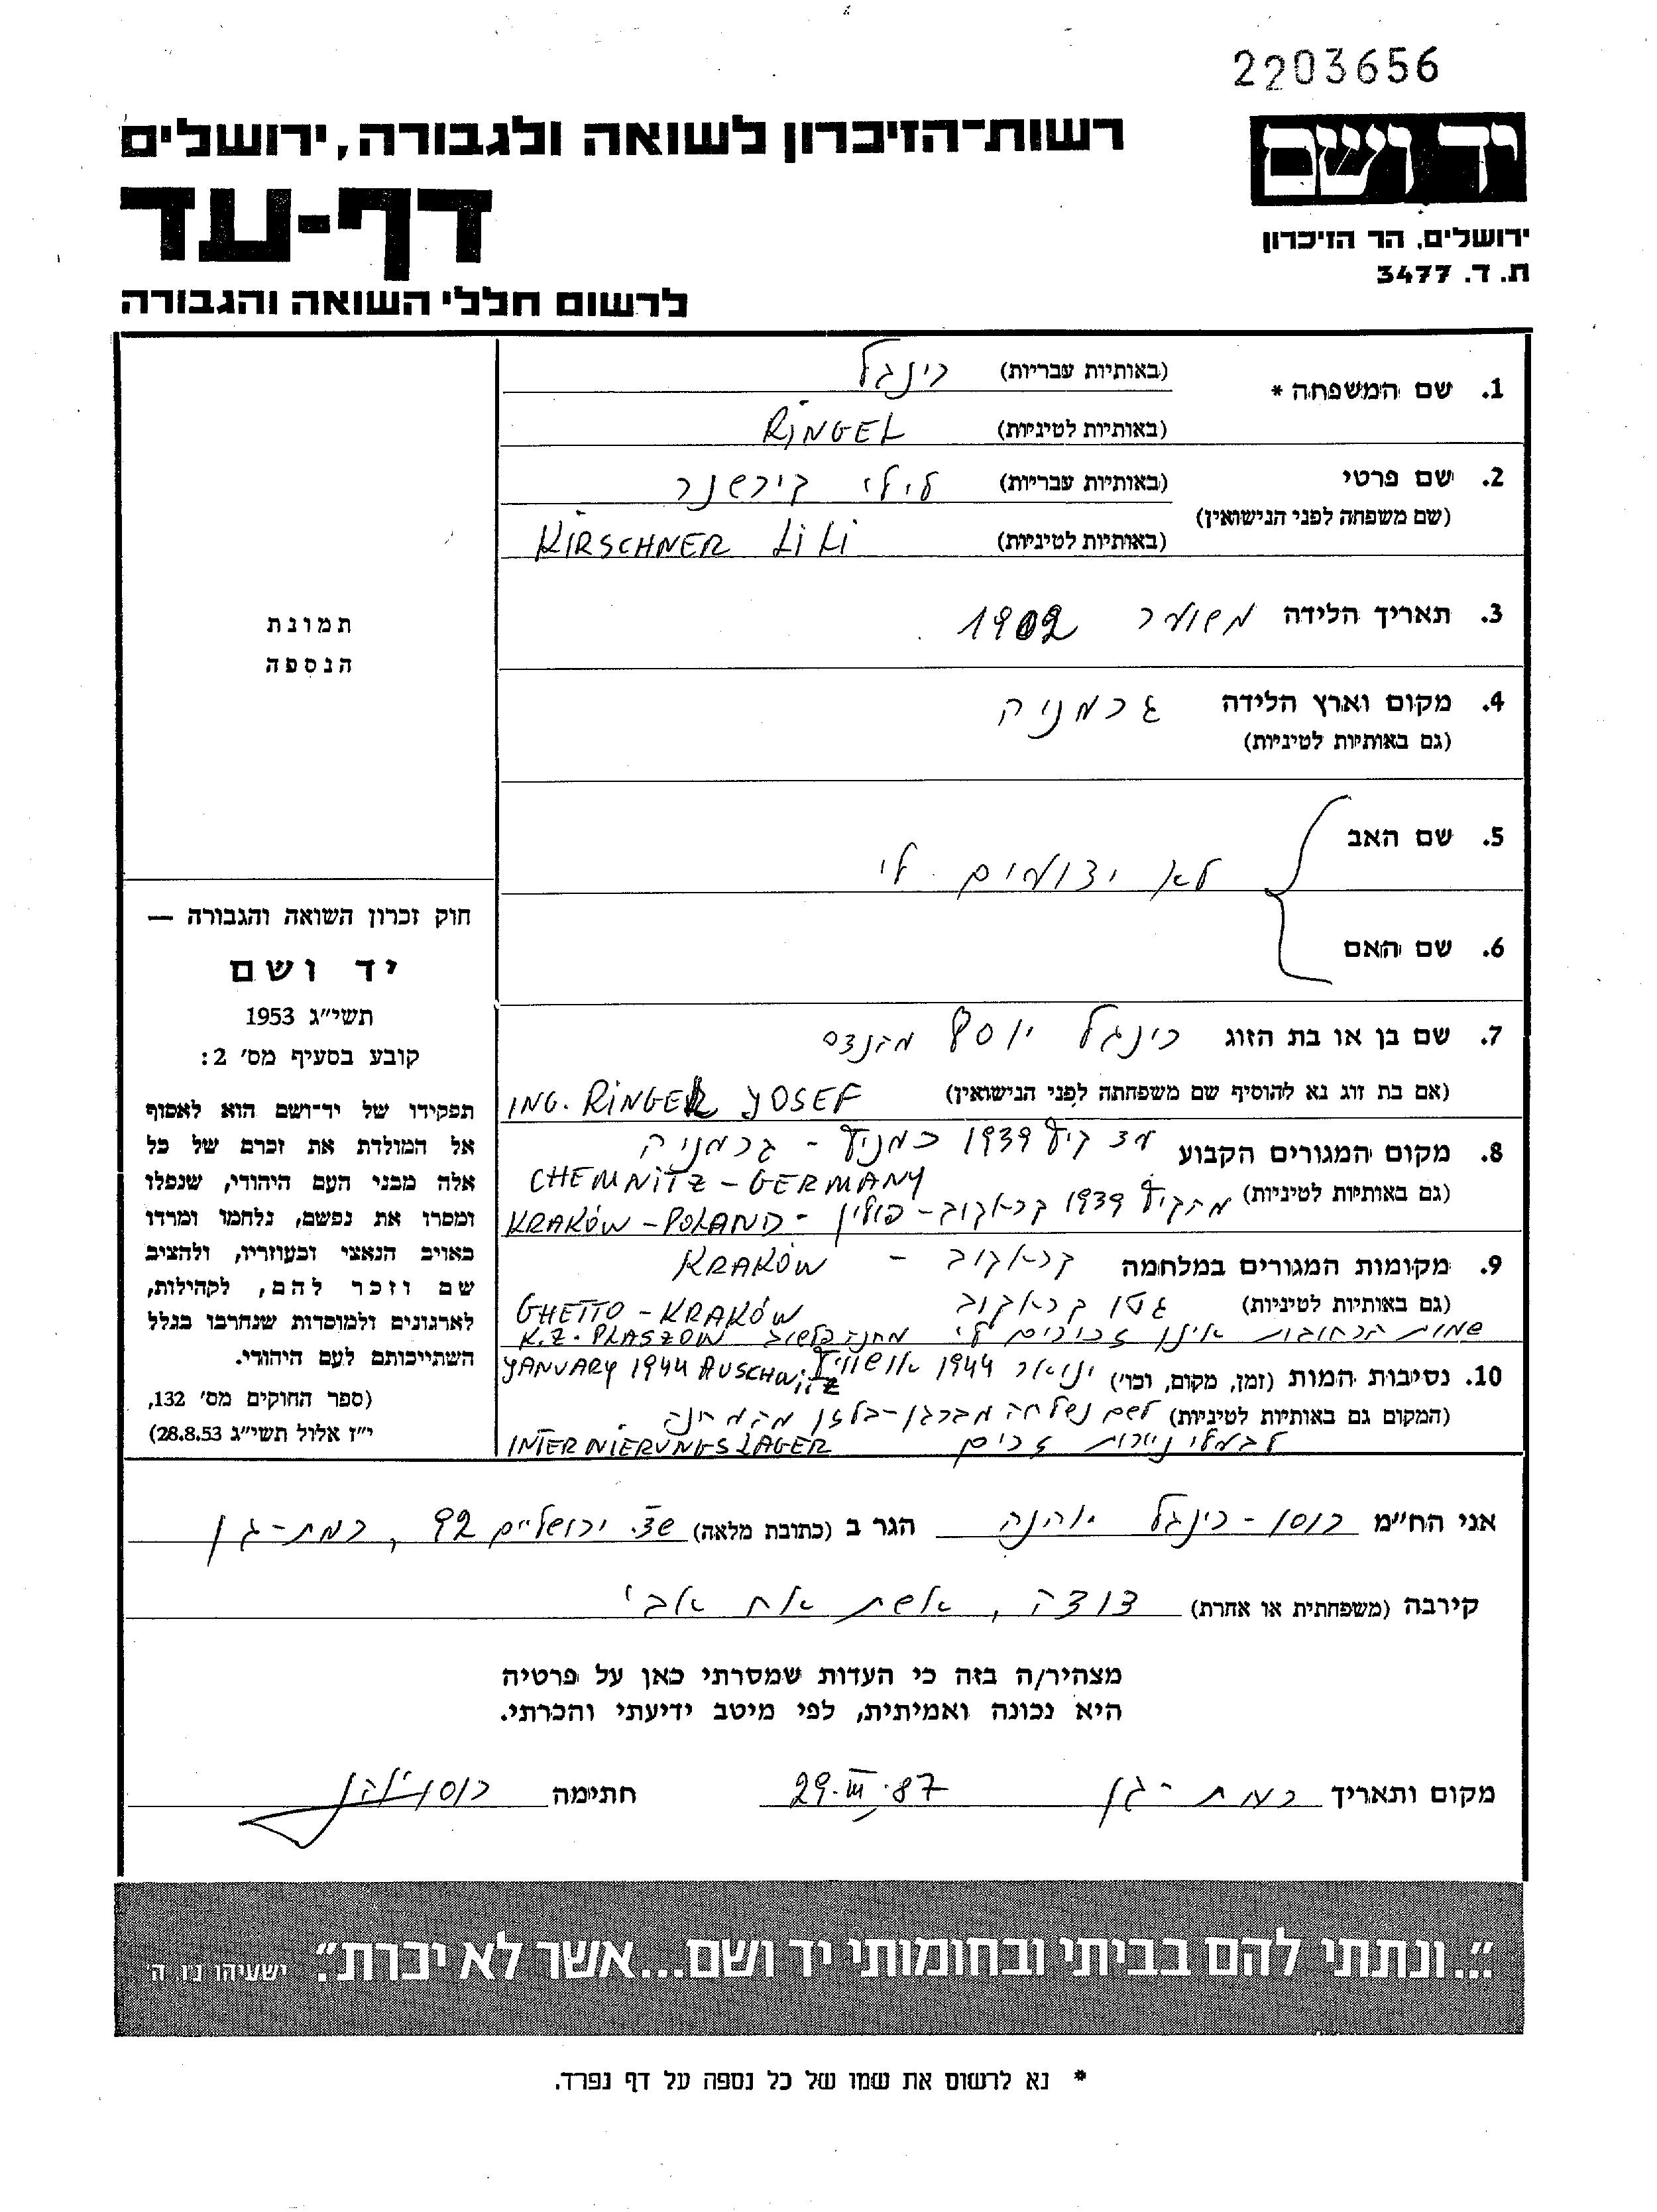 2203656
יד ושם
ירושלים, הר הזיכרון
ת. ד. 3477
רשות־הזיכרון לשואה ולגבורה, ירושלים
דף-עד
לרשום חללי השואה והגבורה
1. שם המשפחה * (באותיות עבריות) רינגל
(באותיות לטיניות) RINGEL
2. שם פרטי (באותיות עבריות) לילי קירשנר
(שם משפחה לפני הנישואין)
(באותיות לטיניות) KIRSCHNER LILI
3. תאריך הלידה משוער 1902
4. מקום וארץ הלידה גרמניה
(גם באותיות לטיניות)
5. שם האב
לא ידועים לי
6. שם האם
7. שם בן או בת הזוג רינגל יוסף מהנדס
(אם בת זוג נא להוסיף שם משפחתה לפני הנישואין) ING. RINGEL YOSEF
8. מקום המגורים הקבוע עד קיץ 1939 כמניץ - גרמניה
CHEMNITZ - GERMANY
(גם באותיות לטיניות) מקיץ 1939 קראקוב - פולין - KRAKÓW - POLAND
9. מקומות המגורים במלחמה קראקוב - KRAKÓW
(גם באותיות לטיניות) גטו קראקוב GHETTO - KRAKÓW
שמות הרחובות אינן זכורים לי מחנה פלשוב K.Z. PLASZOW
10. נסיבות המות (זמן, מקום, וכו') ינואר 1944 אושוויץ YANUARY 1944 AUSCHWITZ
(המקום גם באותיות לטיניות) לשם נשלחה מברגן-בלזן מהמחנה
לבעלי ניירות זרים INTERNIERUNGSLAGER
תמונת
הנספה
חוק זכרון השואה והגבורה —
יד ושם
תשי״ג 1953
קובע בסעיף מס׳ 2:
תפקידו של יד־ושם הוא לאסוף
אל המולדת את זכרם של כל
אלה מבני העם היהודי, שנפלו
ומסרו את נפשם, נלחמו ומרדו
באויב הנאצי ובעוזריו, ולהציב
שם וזכר להם, לקהילות,
לארגונים ולמוסדות שנחרבו בגלל
השתייכותם לעם היהודי.
(ספר החוקים מס׳ 132,
י״ז אלול תשי״ג 28.8.53)
אני הח״מ רוסו - רינגל יוהנה הגר ב (כתובת מלאה) שד. ירושלים 92, רמת-גן
קירבה (משפחתית או אחרת) דודה, אשת אח אבי
מצהיר/ה בזה כי העדות שמסרתי כאן על פרטיה
היא נכונה ואמיתית, לפי מיטב ידיעתי והכרתי.
מקום ותאריך רמת-גן 29.III.87 חתימה
״...ונתתי להם בביתי ובחומותי יד ושם...אשר לא יכרת״. ישעיהו נ״ו, ה׳
* נא לרשום את שמו של כל נספה על דף נפרד.